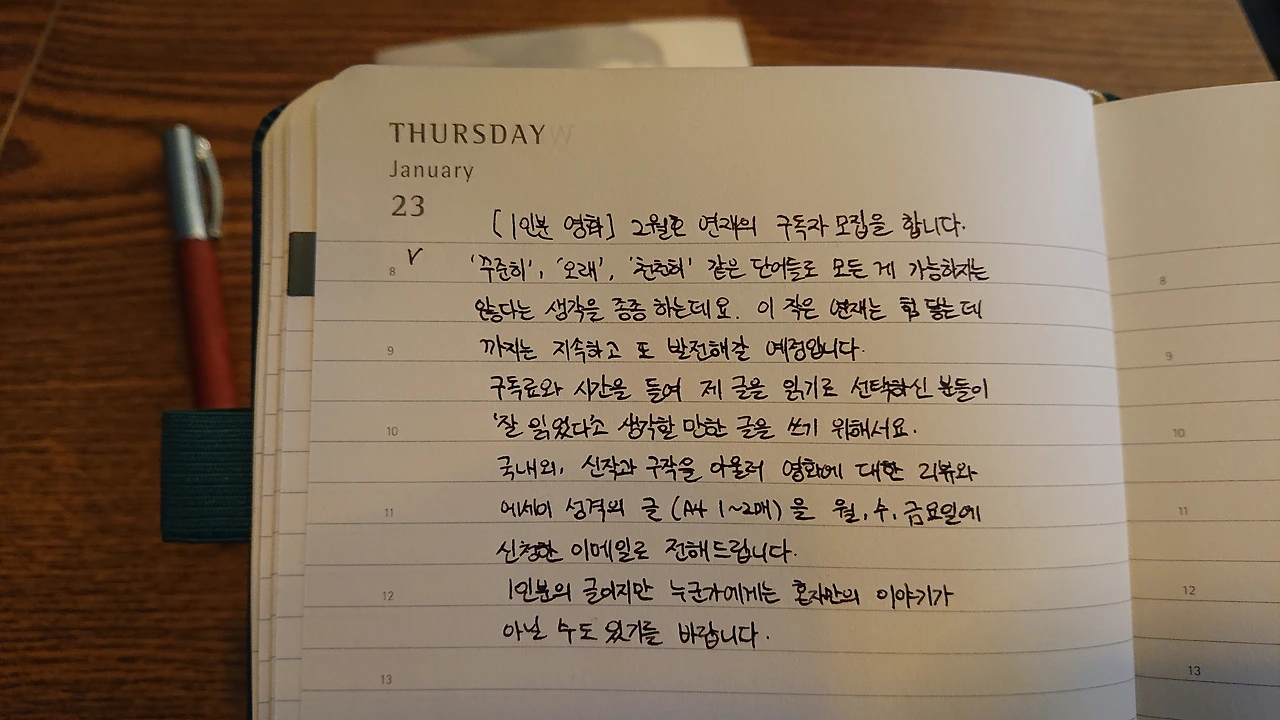 THURSDAY
January
23
[1인분 영화] 2월호 연재의 구독자 모집을 합니다.
8 v '꾸준히', '오래', '천천히' 같은 단어들로 모든 게 가능하지는 8
않다는 생각을 종종 하는데요. 이 작은 연재는 힘 닿는 데
9 까지는 지속하고 또 발전해갈 예정입니다. 9
구독료와 시간을 들여 제 글을 읽기로 선택하신 분들이
10 '잘 읽었다'고 생각할 만한 글을 쓰기 위해서요. 10
국내외, 신작과 구작을 아울러 영화에 대한 리뷰와
11 에세이 성격의 글 (A4 1~2매)을 월, 수, 금요일에 11
신청한 이메일로 전해드립니다.
12 1인분의 글이지만 누군가에게는 혼자만의 이야기가 12
아닐 수도 있기를 바랍니다.
13 13